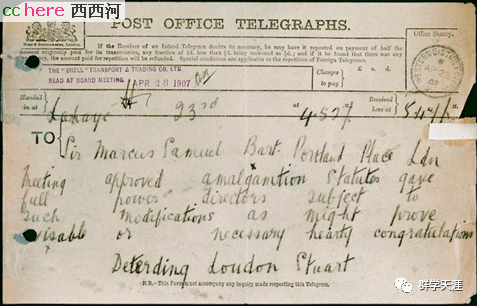 cchere 西西河
POST OFFICE TELEGRAPHS.
If the Receiver of an Inland Telegram doubts its accuracy, he may have it repeated on payment of half the
amount originally paid for its transmission, any fraction of 1d. less than ½d. being reckoned as ½d.; and if it be found that there was any
inaccuracy, the amount paid for repetition will be refunded. Special conditions are applicable to the repetition of Foreign Telegrams.
Office Stamp.
THE "SHELL" TRANSPORT & TRADING CO. LTD.
READ AT BOARD MEETING. APR 26 1907
Charges
to pay
£ s. d.
Handed
in at
Lahaye
23rd
4.52
Received
here at
5.47
TO
Sir Marcus Samuel Bart. Portland Place Ldn
Meeting approved amalgamtion Statutes gave
full power directors subject to
such modifications as might prove
visable or necessary hearty congratulations
Deterding Loudon Stuart
N.B.—This Form must accompany any inquiry made respecting this Telegram.
群学天涯